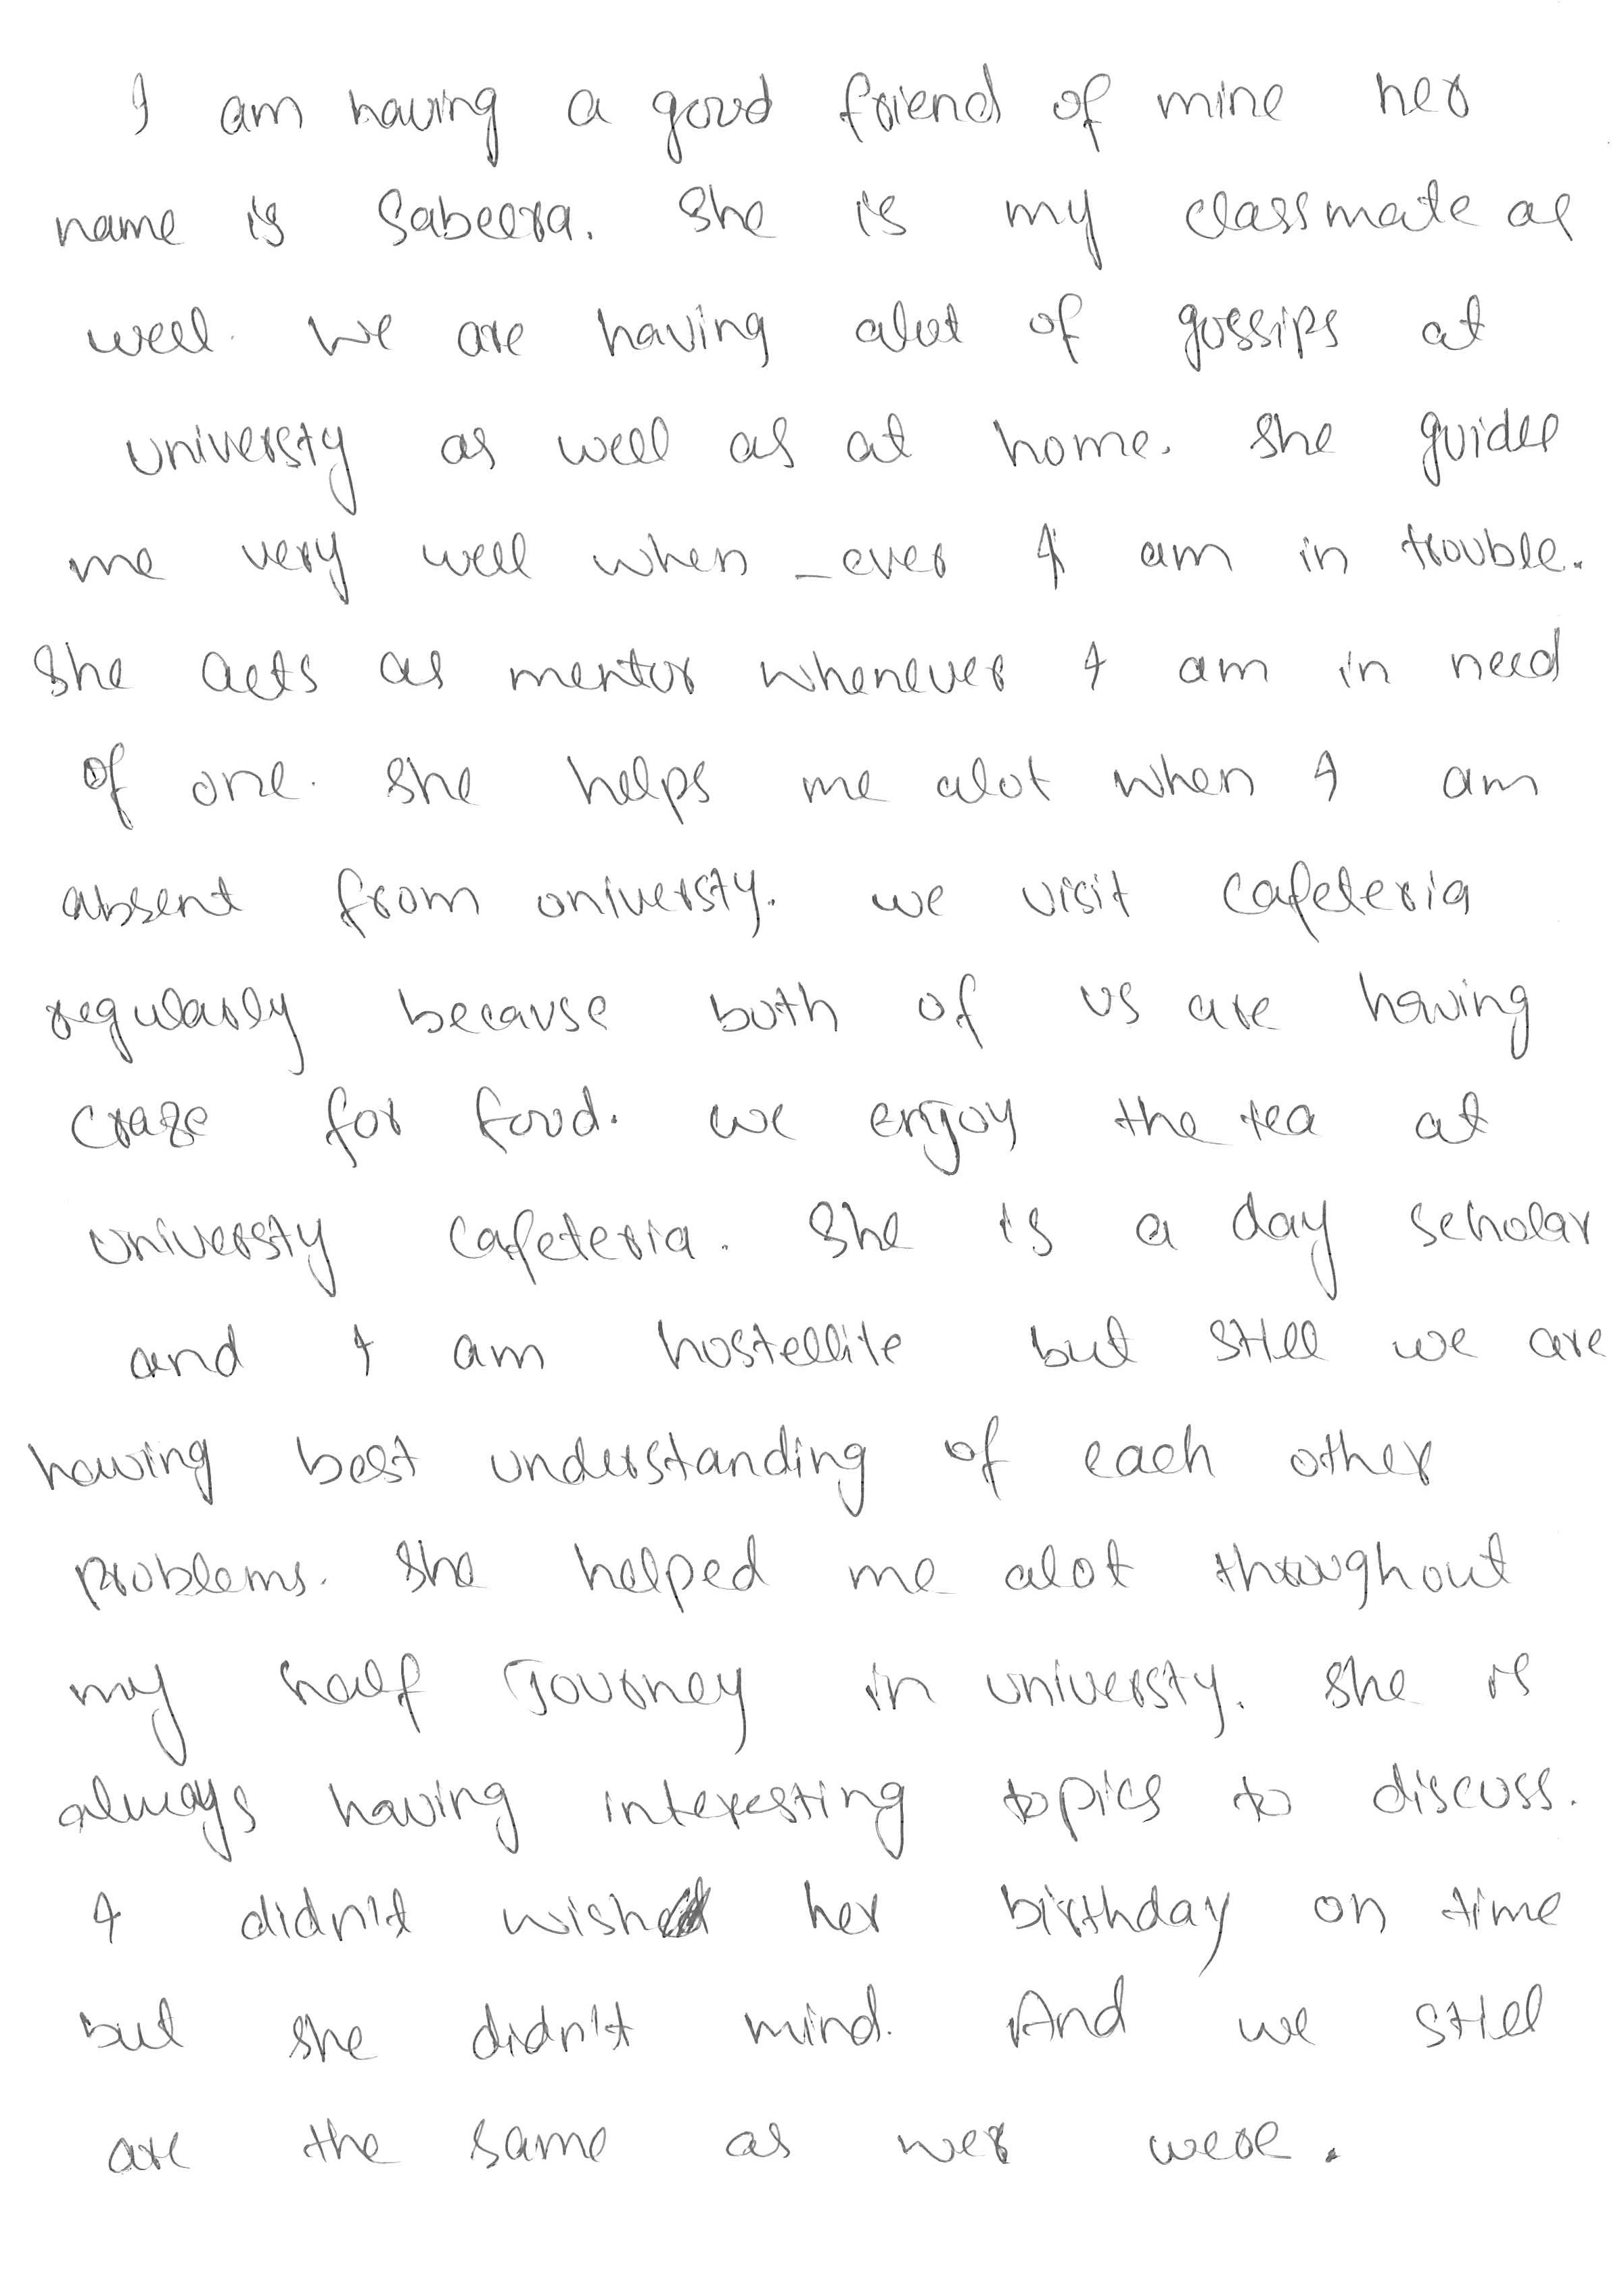 I am having a good friend of mine her
name is Sabeera. She is my classmate as
well. We are having alot of gossips at
universty as well as at home. She guides
me very well when _ever I am in trouble.
She acts as mentor whenever I am in need
of one. She helps me alot when I am
absent from universty. we visit cafeteria
regularly because both of us are having
craze for food. we enjoy the tea at
universty cafeteria. She is a day scholar
and I am hostellite but still we are
having best understanding of each other
problems. She helped me alot throughout
my half Journey in universty. She is
always having interesting topics to discuss.
I didn't wish her birthday on time
but she didn't mind. And we still
are the same as wer were.